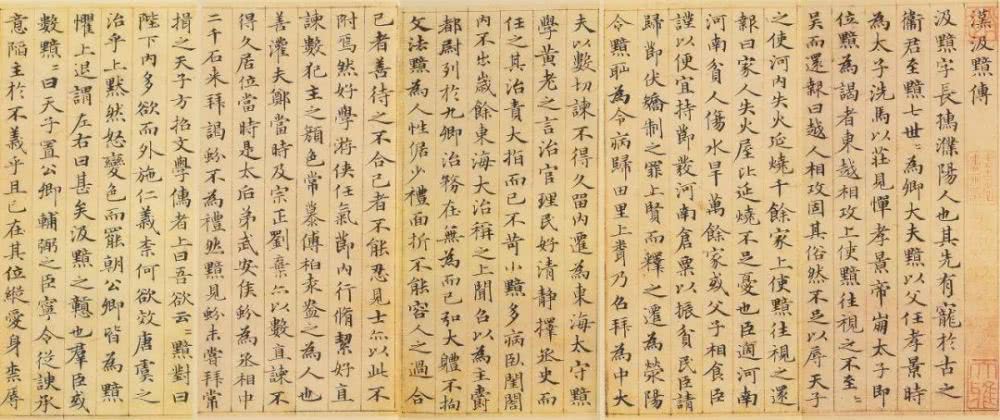 漢汲黯傳
汲黯字長孺濮陽人也其先有寵於古之
衛君至黯七世〻為卿大夫黯以父任孝景時
為太子洗馬以莊見憚孝景帝崩太子即
位黯為謁者東越相攻上使黯往視之不至〻
吳而還報曰越人相攻固其俗然不足以辱天子
之使河內失火延燒千餘家上使黯往視之還
報曰家人失火屋比延燒不足憂也臣過河南
河南貧人傷水旱萬餘家或父子相食臣
謹以便宜持節發河南倉粟以振貧民臣請
歸節伏矯制之罪上賢而釋之遷為滎陽
令黯恥為令病歸田里上聞乃召拜為中大
夫以數切諫不得久留內遷為東海太守黯
學黃老之言治官理民好清靜擇丞史而
任之其治責大指而已不苛小黯多病臥閨閤
內不出歲餘東海大治稱之上聞召以為主爵
都尉列於九卿治務在無為而已弘大體不拘
文法黯為人性倨少禮面折不能容人之過合
己者善待之不合己者不能忍見士亦以此不
附焉然好學游俠任氣節內行脩絜好直
諫數犯主之顏色常慕傅柏袁盎之為人也
善灌夫鄭當時及宗正劉棄亦以數直諫不
得久居位當時是太后弟武安侯蚡為丞相中
二千石来拜謁蚡不為禮然黯見蚡未嘗拜常
揖之天子方招文學儒者上曰吾欲云〻黯對曰
陛下內多欲而外施仁義柰何欲效唐虞之
治乎上默然怒變色而罷朝公卿皆為黯
懼上退謂左右曰甚矣汲黯之戇也羣臣或
數黯〻曰天子置公卿輔弼之臣寧令從諛承
意陷主於不義乎且已在其位縱愛身柰辱